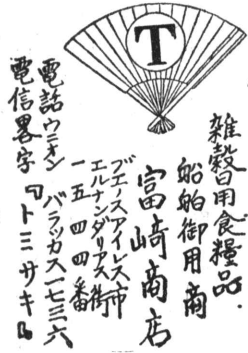 T
雑穀日用食糧品.
船舶御用商
富﨑商店
ブエノスアイレス市
エルナンダリアス街
一五四四番
電話ウニオン
バラッカス一七三六
電信畧字『トミサキ』